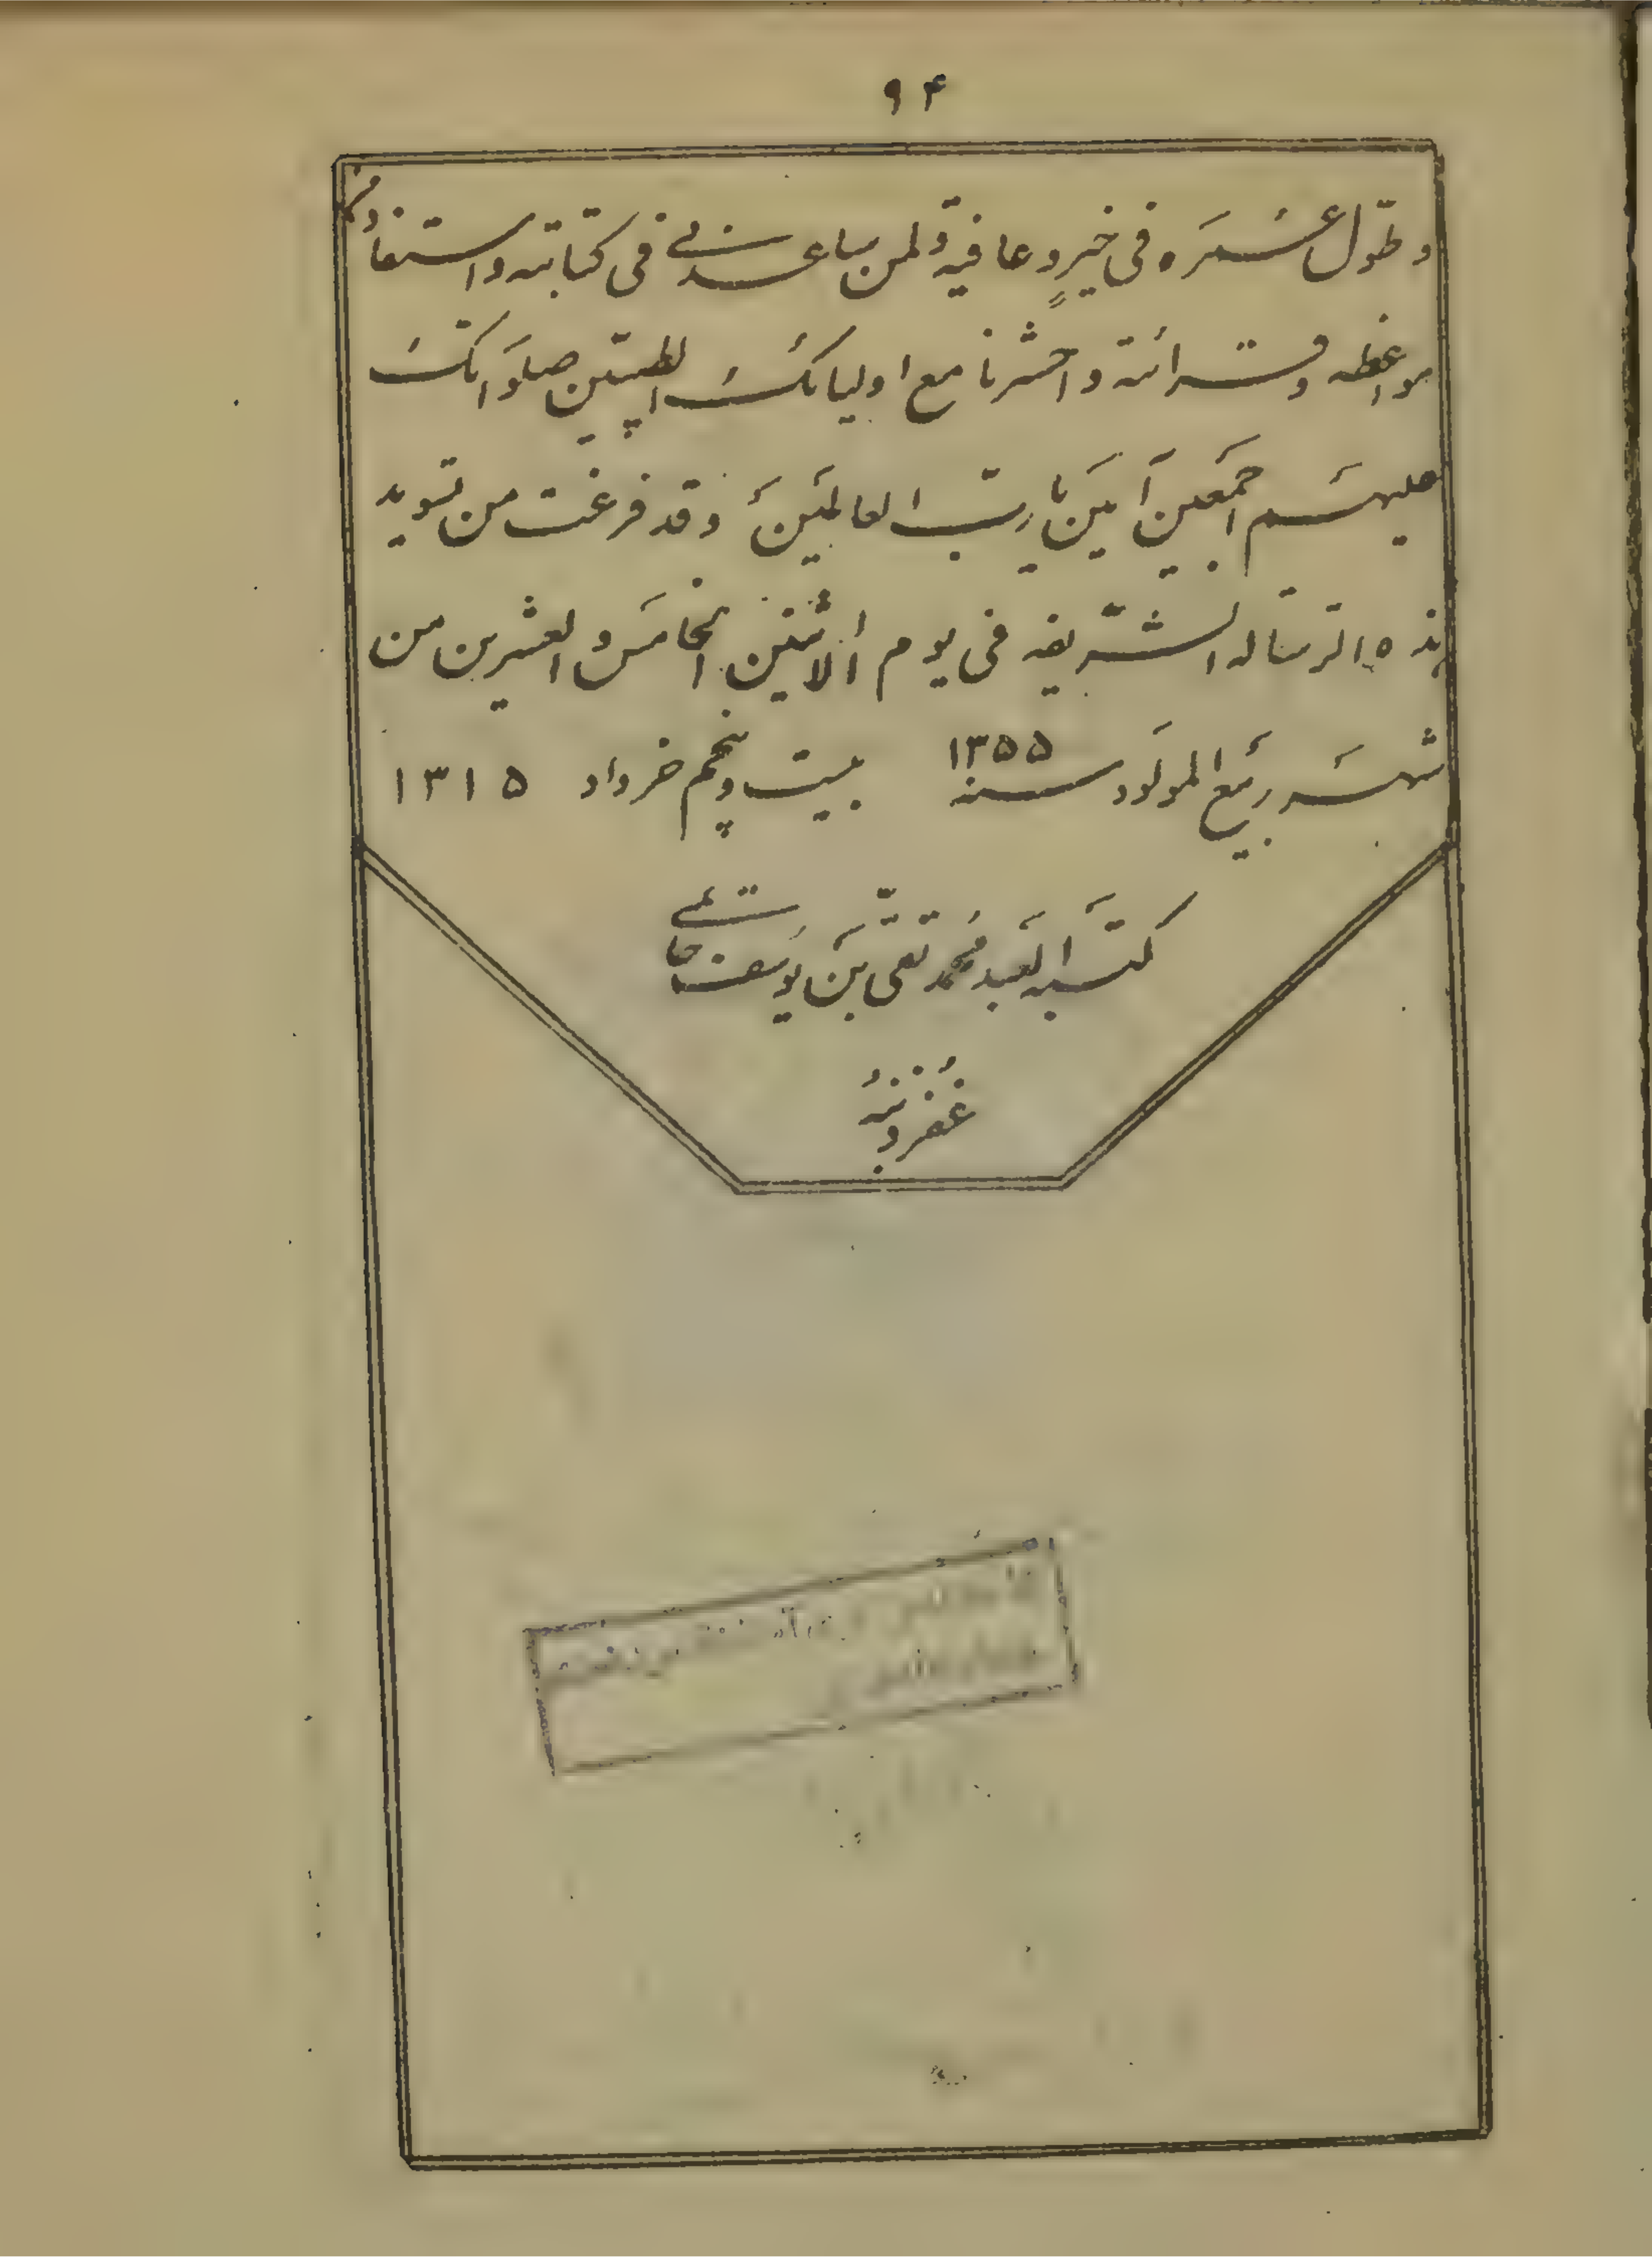 ۹۴
و طوّل عمره فی خیرٍ و عافیة و لمن ساعدنی فی کتابته و استفاد من
مواعظه و قرائته و احشرنا مع اولیائک الطیبین صلواتک
علیهم اجمعین آمین یا ربّ العالمین و قد فرغت من تسوید
هذه الرساله الشریفه فی یوم الاثنین الخامس و العشرین من
شهر ربیع المولود سنه ۱۳۵۵ بیست و پنجم خرداد ۱۳۱۵
کتبه العبد محمد تقی بن یوسف حاتمی
غفر ذنوبه